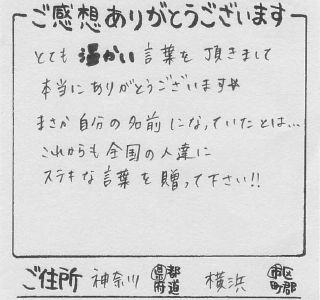 ご感想ありがとうございます
とても温かい言葉を頂きまして
本当にありがとうございます
まさか自分の名前になっていたとは…
これからも全国の人達に
ステキな言葉を贈って下さい!!
ご住所 神奈川 都道府県 横浜 市区町郡